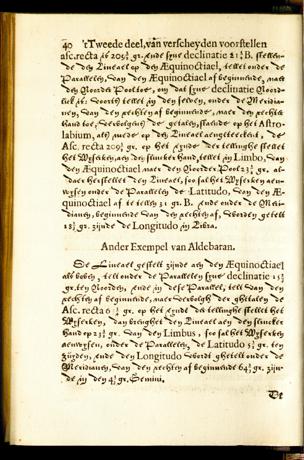 40 't Tweede deel, van verscheyden voorstellen
asc. recta is 205 gr. ende sijne declinatie 21 gr. B. stellen-
de den Lineael op den Æquinoctiael, tellet onder de
Parallelen, van den Æquinoctiael af beginnende, naer
den Noorder Pool toe, om dat sijne declinatie Noord-
lick is: voorts tellet in den selven, onder de Meridia-
nen, van den rechten af beginnende, naer den rechte
hand toe, de getalen, staende op het Astro-
labium, als mede op den Lineael aengeteeckent, de
Asc. recta 209 gr. op het eynde der tellinghe stellet
het Wijserken, aen der slincker hand, tellet in Limbo, van
den Æquinoctiael naer den Noorder Poel 23 gr. al-
daer herstellet den Lineael, soo sal het Wijserken aen-
wijsen onder de Parallelen de Latitudo, van den Æ-
quinoctiael af te tellen 31 gr. B. ende onder de Meri-
dianen, beginnende van den rechten af, worden getelt
18 gr. zijnde de Longitudo in Libra.
Ander Exempel van Aldebaran.
De Lineael gestelt zijnde aen den Æquinoctiael
als boven, telt onder de Parallelen sijne declinatie 15
gr. ten Noorden, ende in dese Parallel, telt van den
rechten af beginnende, naer de ghetalen de
Asc. recta 6 gr. op het eynde der tellinghe stellet het
Wijserken, dan brenghet den Lineael aen den slincker
hand op 23 gr. van den Limbus, soo sal het Wijserken
aenwijsen, onder de Parallelen, de Latitudo 5 gr. ten
zuyden, ende den Longitudo wordt ghetelt onder de
Meridianen, van den rechten af beginnende 64 gr. zijn-
de in den 4 gr. Gemini.
De